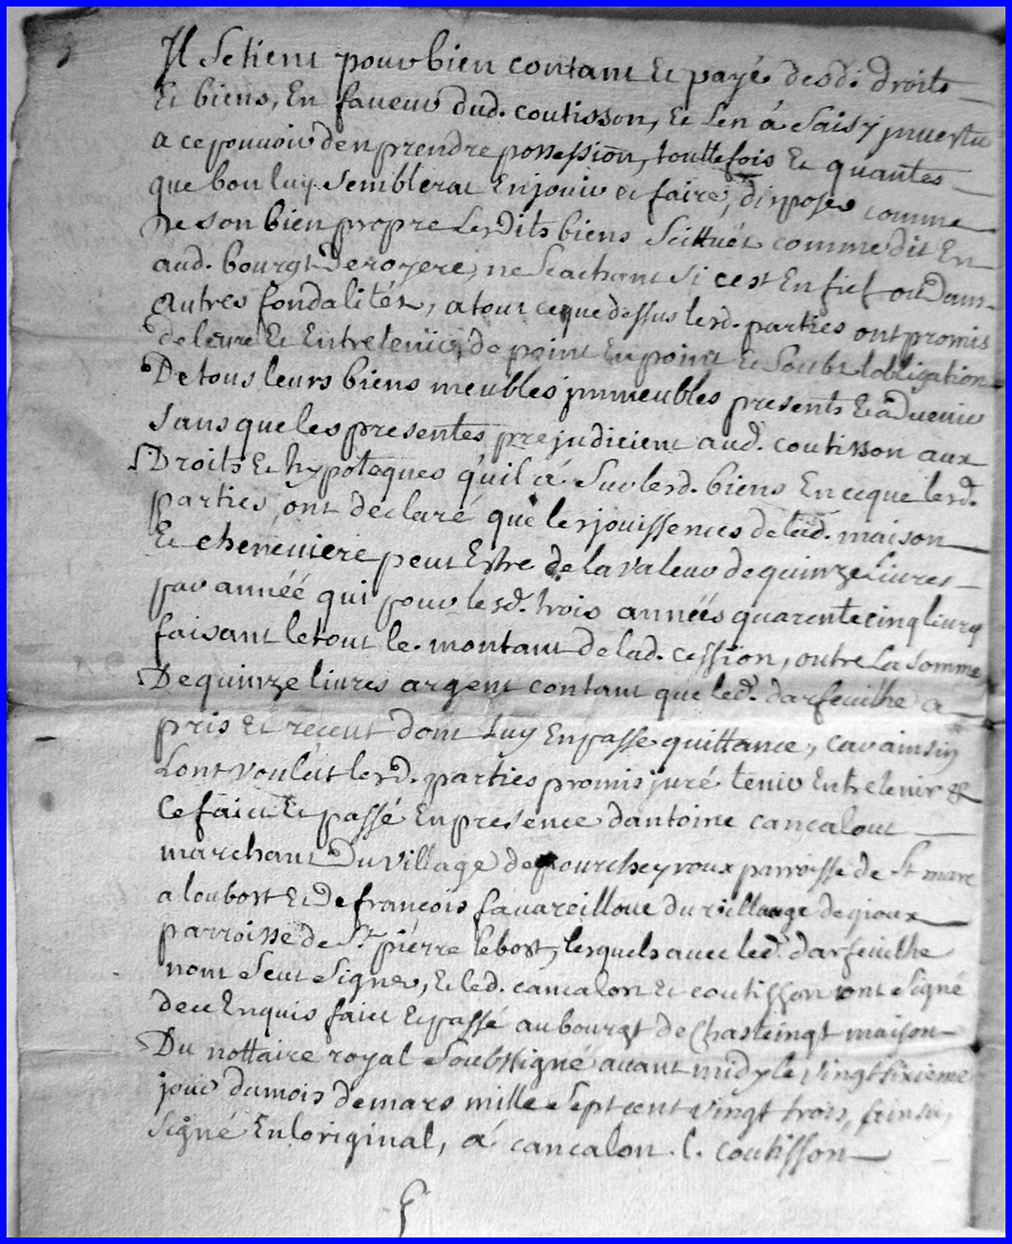 Il se tient pour bien contant et payé desd: droits
Et biens, En faveur dud. coutisson, Et L'en á saisy jnvestu
a ce pouvoir d'en prendre possession, touttefois Et quantes
que bon luy semblerat En jouir et faire, disposer comme
De son bien propre Lesdits biens scittués comme dit En
aud. bourgt de royere, ne scachant si cest En fief ou Dans
autres fondalités, a tout ce que dessus lesd. parties ont promis
de leure Et Entretenir, de point En point Et soubs l'obligation
De tous leurs biens meubles jmmeubles presents Et aDvenir
sans que les presentes prejudicient aud. coutisson aux
Droits Et hypoteques qu'il á sur lesd. biens En ce que lesd.
parties ont declaré que les jouissences de lad. maison
Et cheneviere peut Estre de la valeur de quinze Livres
par année qui pour lesd. trois années quarente cinq livres
faisant le tout le montant de lad. cession, outre La somme
De quinze livres argent contant que led. darfeuilhe a
pris et receut dont Luy En passe quittance, car ainsin
Lont voulut lesd. parties promis juré tenir Entretenir &
Ce faict Et passé En presence d'antoine cancalont
marchant Du village de pourcheyroux parroisse de St marc
a loubost Et de françois favareilloue du village de gioux
parroisse de St pierre lebost, lesquels avec led. darfeuilhe
nont sceut signer, Et led. cancalon Et coutisson ont signé
de ce Enquis faict Et passé au bourgt de Chasteingt maison
Du nottaire royal soubsigné avant midy le vingtsixieme
jour du mois de mars mille sept cent vingt trois, finsin,
signé En l'original, á cancalon. l. coutisson